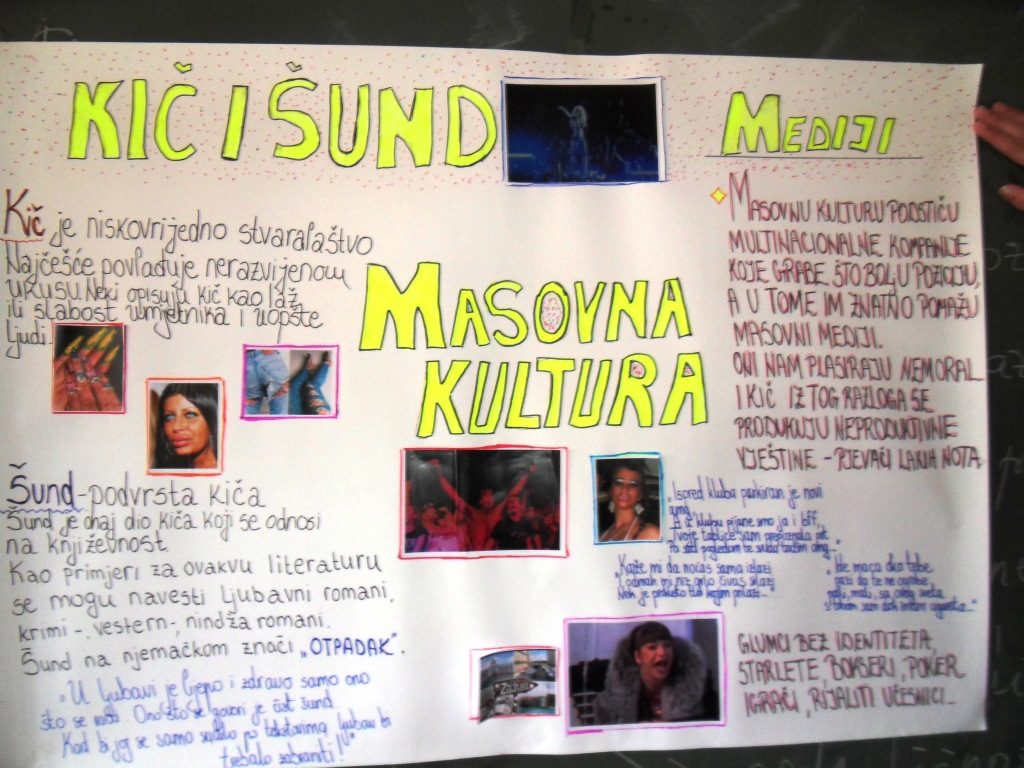 KIČ I ŠUND
MEDIJI
Kič je niskovrijedno stvaralaštvo
Najčešće povlađuje nerazvijenom
ukusu. Neki opisuju kič kao laž,
ili slabost umjetnika i uopšte
ljudi.
MASOVNA
KULTURA
Šund-podvrsta kiča
Šund je onaj dio kiča koji se odnosi
na književnost.
Kao primjeri za ovakvu literaturu
se mogu navesti ljubavni romani,
krimi-, vestern-, nindža romani.
Šund na njemačkom znači „OTPADAK".
„U ljubavi je lijepo i zdravo samo ono
što se Ono što se govori je čist šund.
Kad bi joj se samo sudilo po tekstovima ljubav bi
trebalo zabraniti!"
MASOVNU KULTURU PODSTIČU
MULTINACIONALNE KOMPANIJE
KOJE GRABE ŠTO BOLJU POZICIJU,
A U TOME IM ZNATNO POMAŽU
MASOVNI MEDIJI.
ONI NAM PLASIRAJU NEMORAL
I KIČ IZ TOG RAZLOGA SE
PRODUKUJU NEPRODUKTIVNE
VJEŠTINE - PJEVAČI LAKIH NOTA
„Ispred kluba parkiran je novi
amg
A u klubu pijane smo ja i bff,
Tvoje tablice sam prepoznala
Po pogledom te svuda tražim omg..."
„Kaže mi da noćas sama izlazi
I odmah mi niz grlo čivas silazi
Nek je prokleto tlo kojim prilazi..."
„Ide maca oko tebe
pazi da te ne ogrebe
mali, mali, sa
GLUMCI BEZ IDENTITETA,
STARLETE, BOKSERI, POKER
IGRAČI, RIJALITI UČESNICI...